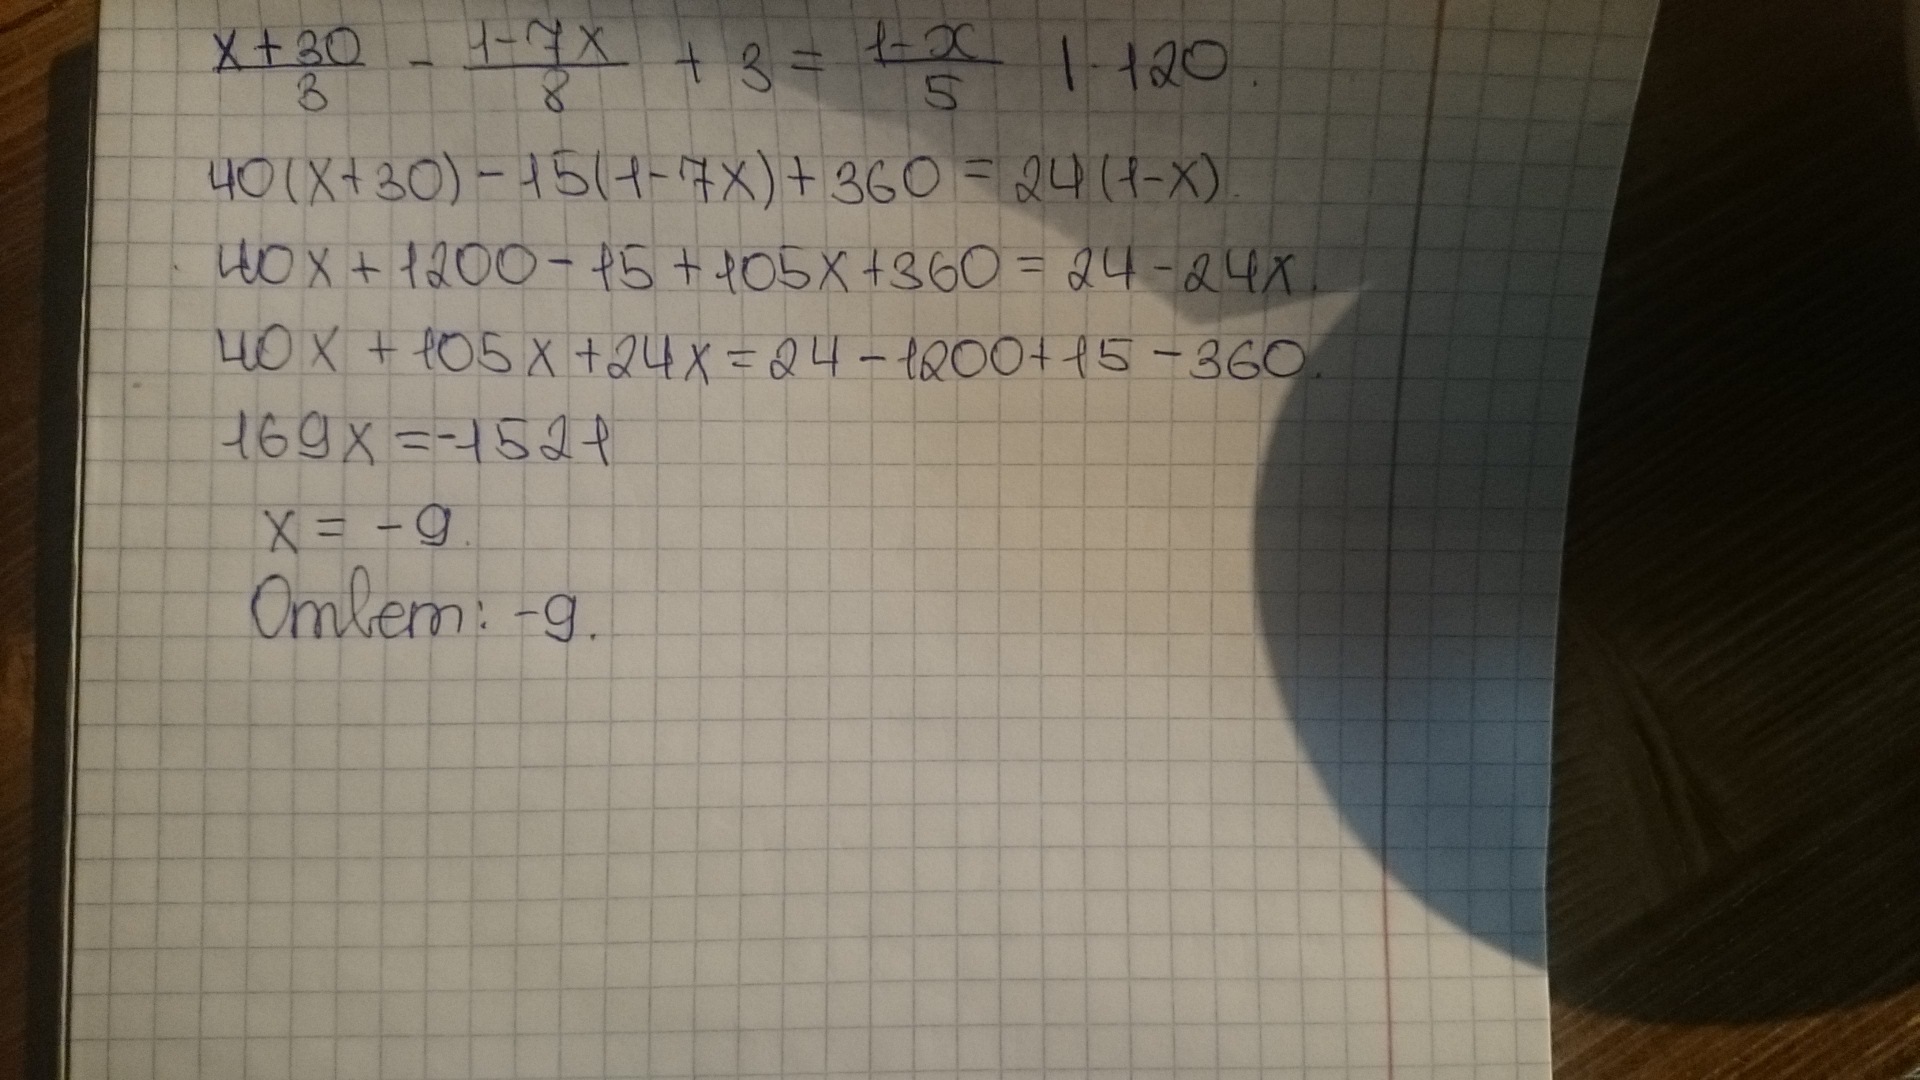 (x+30)/3 - (1-7x)/8 + 3 = (1-x)/5 | · 120.
40(x+30)-15(1-7x)+360=24(1-x).
40x+1200-15+105x+360=24-24x.
40x+105x+24x=24-1200+15-360.
169x=-1521
x=-9.
Ответ: -9.